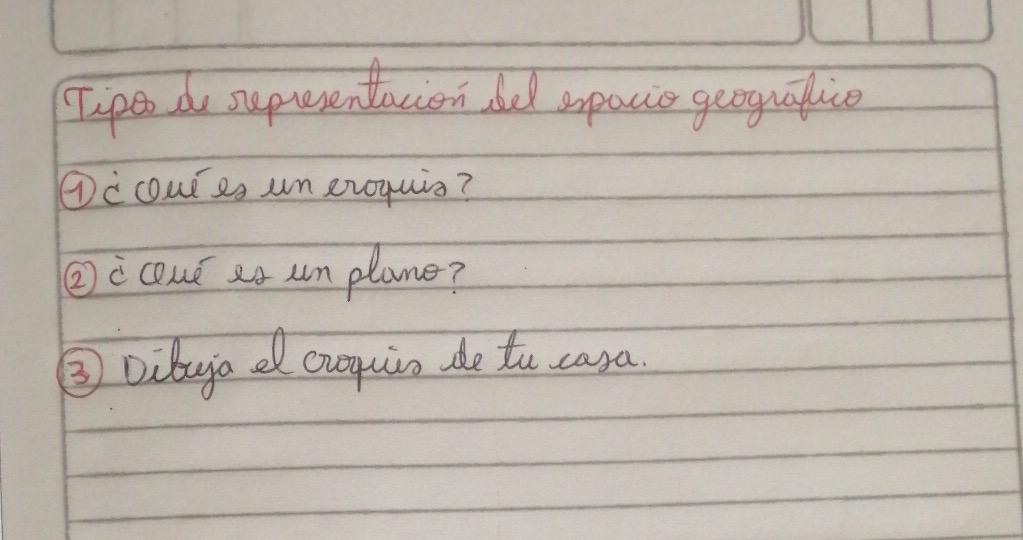 Tipos de representación del espacio geográfico
① ¿Qué es un croquis?
② ¿Qué es un plano?
③ Dibuja el croquis de tu casa.